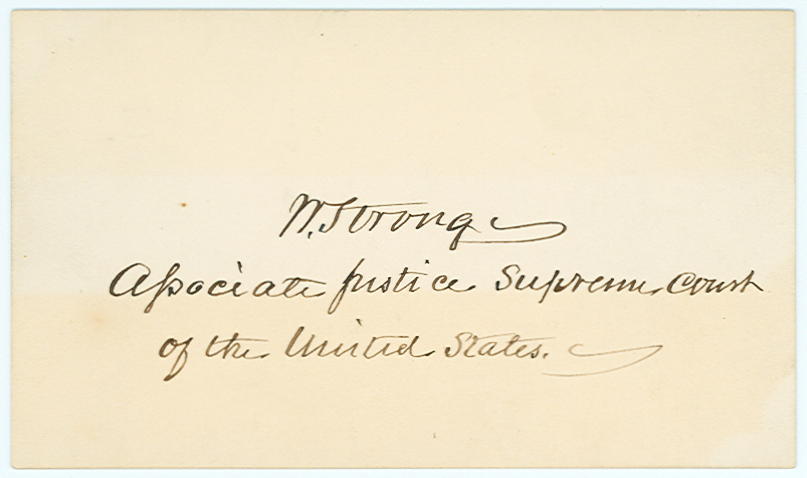 W. Strong
Associate Justice Supreme Court
of the United States.